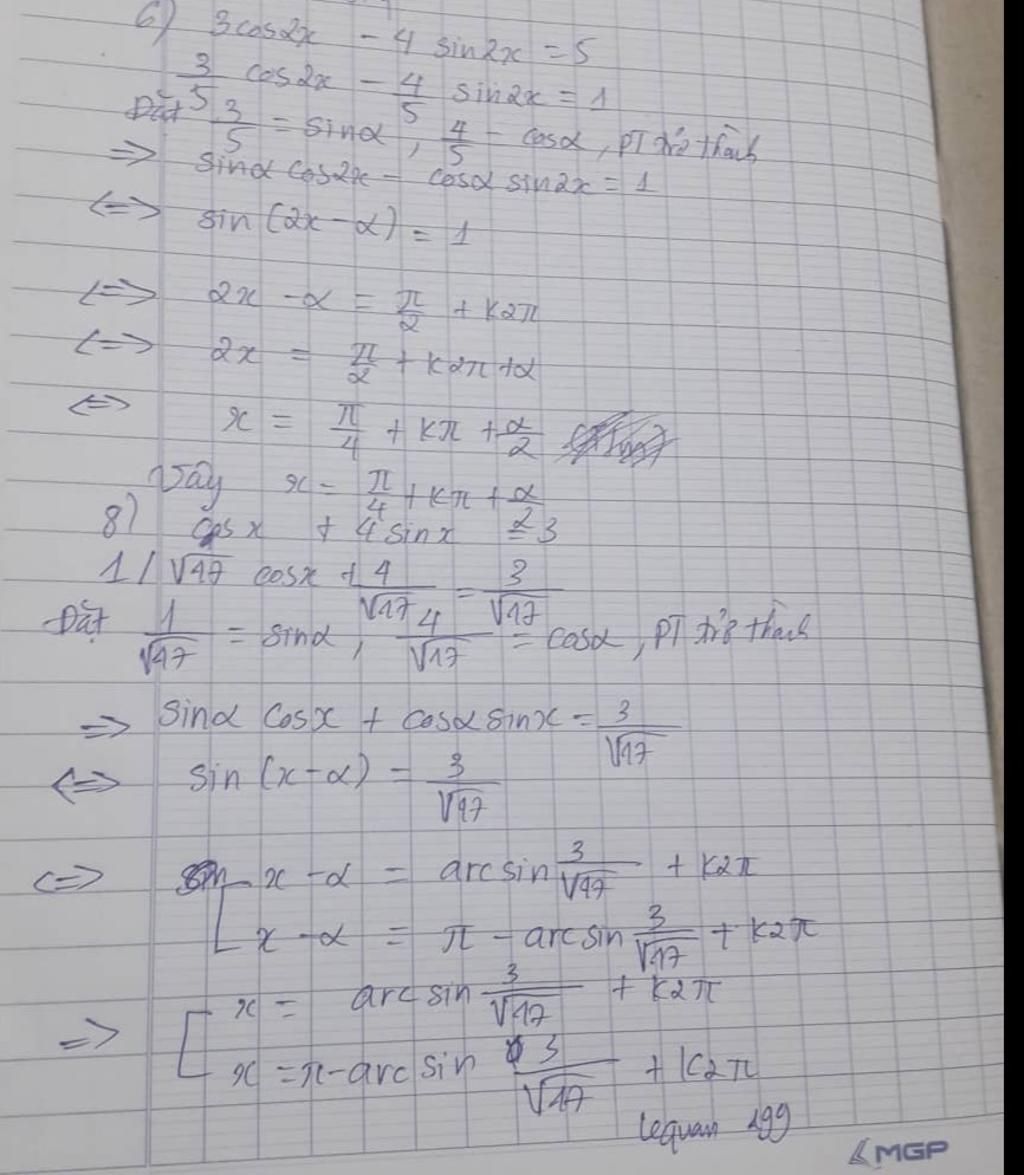 6) 3cos2x - 4 sin2x = 5
3/5 cos2x - 4/5 sin2x = 1
Đặt 3/5 = sinα, 4/5 - cosα, PT trở thành
=> sinα cos2x - cosα sin2x = 1
<=> sin (2x - α) = 1
<=> 2x - α = π/2 + k2π
<=> 2x = π/2 + k2π + α
<=> x = π/4 + kπ + α/2
Vậy x = π/4 + kπ + α/2
8) cos x + 4 sinx = 3
1/√17 cosx + 4/√17 = 3/√17
Đặt 1/√17 = sinα, 4/√17 = cosα, PT trở thành
=> sinα cosx + cosα sinx = 3/√17
<=> sin (x - α) = 3/√17
<=> x - α = arcsin 3/√17 + k2π
x - α = π - arcsin 3/√17 + k2π
=> x = arcsin 3/√17 + k2π
x = π - arcsin 3/√17 + k2π
lequan 199
MGP